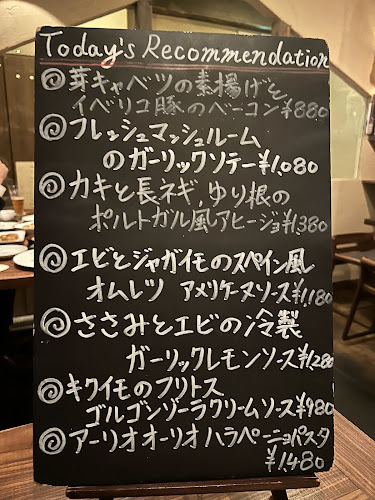 Today's Recommendation
◎芽キャベツの素揚げと
イベリコ豚のベーコン¥880
◎フレッシュマッシュルーム
のガーリックソテー¥1,080
◎カキと長ネギ,ゆり根の
ポルトガル風アヒージョ¥1,380
◎エビとジャガイモのスペイン風
オムレツ アメリケーヌソース¥1,180
◎ささみとエビの冷製
ガーリックレモンソース¥1,280
◎キクイモのフリトス
ゴルゴンゾーラクリームソース¥980
◎アーリオオーリオハラペーニョパスタ
¥1,480